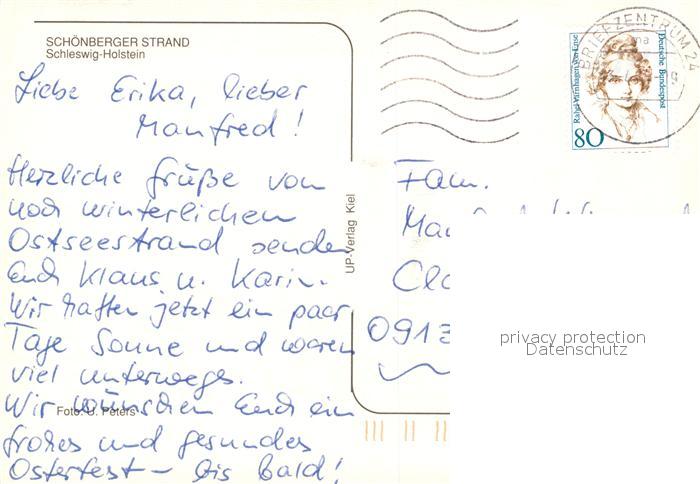 SCHÖNBERGER STRAND
Schleswig-Holstein
Liebe Erika, lieber
Manfred!
Herzliche Grüße vom
noch winterlichen
Ostseestrand senden
Euch Klaus u. Karin.
Wir hatten jetzt ein paar
Tage Sonne und waren
viel unterwegs.
Wir wünschen Euch ein
frohes und gesundes
Osterfest – bis bald!
Foto: U. Peters
UP-Verlag Kiel
BRIEFZENTRUM 24
Rahel Varnhagen von Ense
Deutsche Bundespost
80
Fam.
0913
privacy protection
Datenschutz